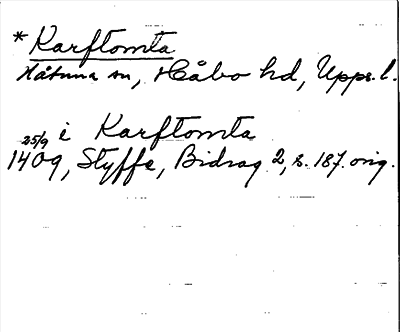 * Karftomta
Håtuna sn, Håbo hd, Upps. l.
i Karftomta
25/9 1409, Styffe, Bidrag 2, s. 187. orig.